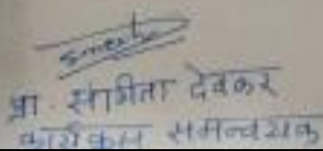 प्रा. संगीता देवकर
कार्यक्रम समन्वयक